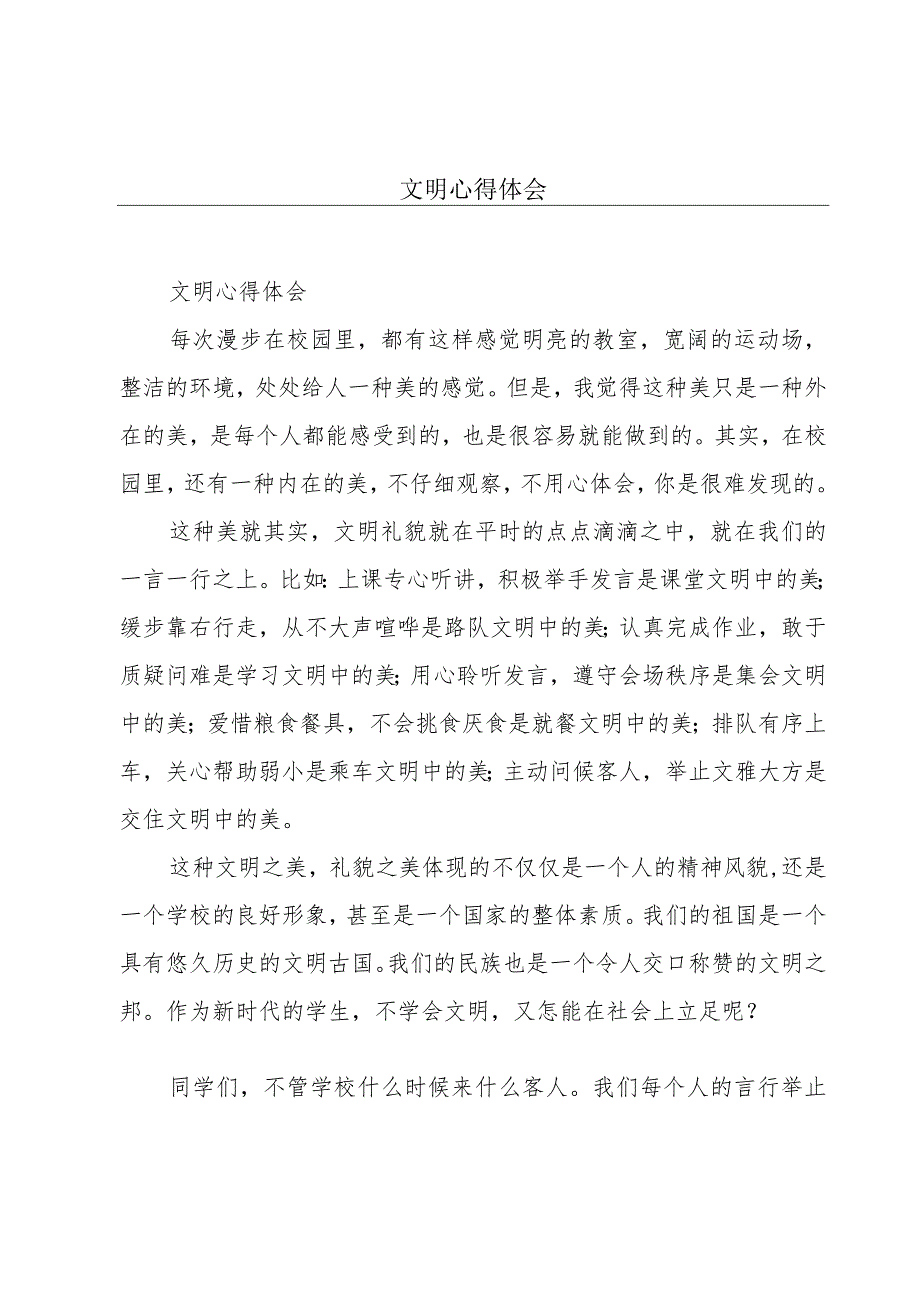 文明心得体会
文明心得体会
每次漫步在校园里，都有这样感觉明亮的教室，宽阔的运动场，
整洁的环境，处处给人一种美的感觉。但是，我觉得这种美只是一种外
在的美，是每个人都能感受到的，也是很容易就能做到的。其实，在校
园里，还有一种内在的美，不仔细观察，不用心体会，你是很难发现的。
这种美就其实，文明礼貌就在平时的点点滴滴之中，就在我们的
一言一行之上。比如：上课专心听讲，积极举手发言是课堂文明中的美；
缓步靠右行走，从不大声喧哗是路队文明中的美；认真完成作业，敢于
质疑问难是学习文明中的美；用心聆听发言，遵守会场秩序是集会文明
中的美；爱惜粮食餐具，不会挑食厌食是就餐文明中的美；排队有序上
车，关心帮助弱小是乘车文明中的美；主动问候客人，举止文雅大方是
交住文明中的美。
这种文明之美，礼貌之美体现的不仅仅是一个人的精神风貌，还是
一个学校的良好形象，甚至是一个国家的整体素质。我们的祖国是一个
具有悠久历史的文明古国。我们的民族也是一个令人交口称赞的文明之
邦。作为新时代的学生，不学会文明，又怎能在社会上立足呢？
同学们，不管学校什么时候来什么客人。我们每个人的言行举止